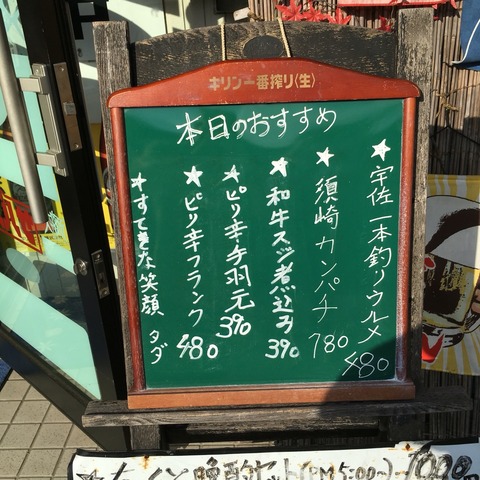 キリン一番搾り〈生〉
本日のおすすめ
★宇佐一本釣りウルメ 480
★須崎カンパチ 780
★和牛スジ煮込み 390
★ピリ辛手羽元 390
★ピリ辛フランク 480
★すてきな笑顔 タダ